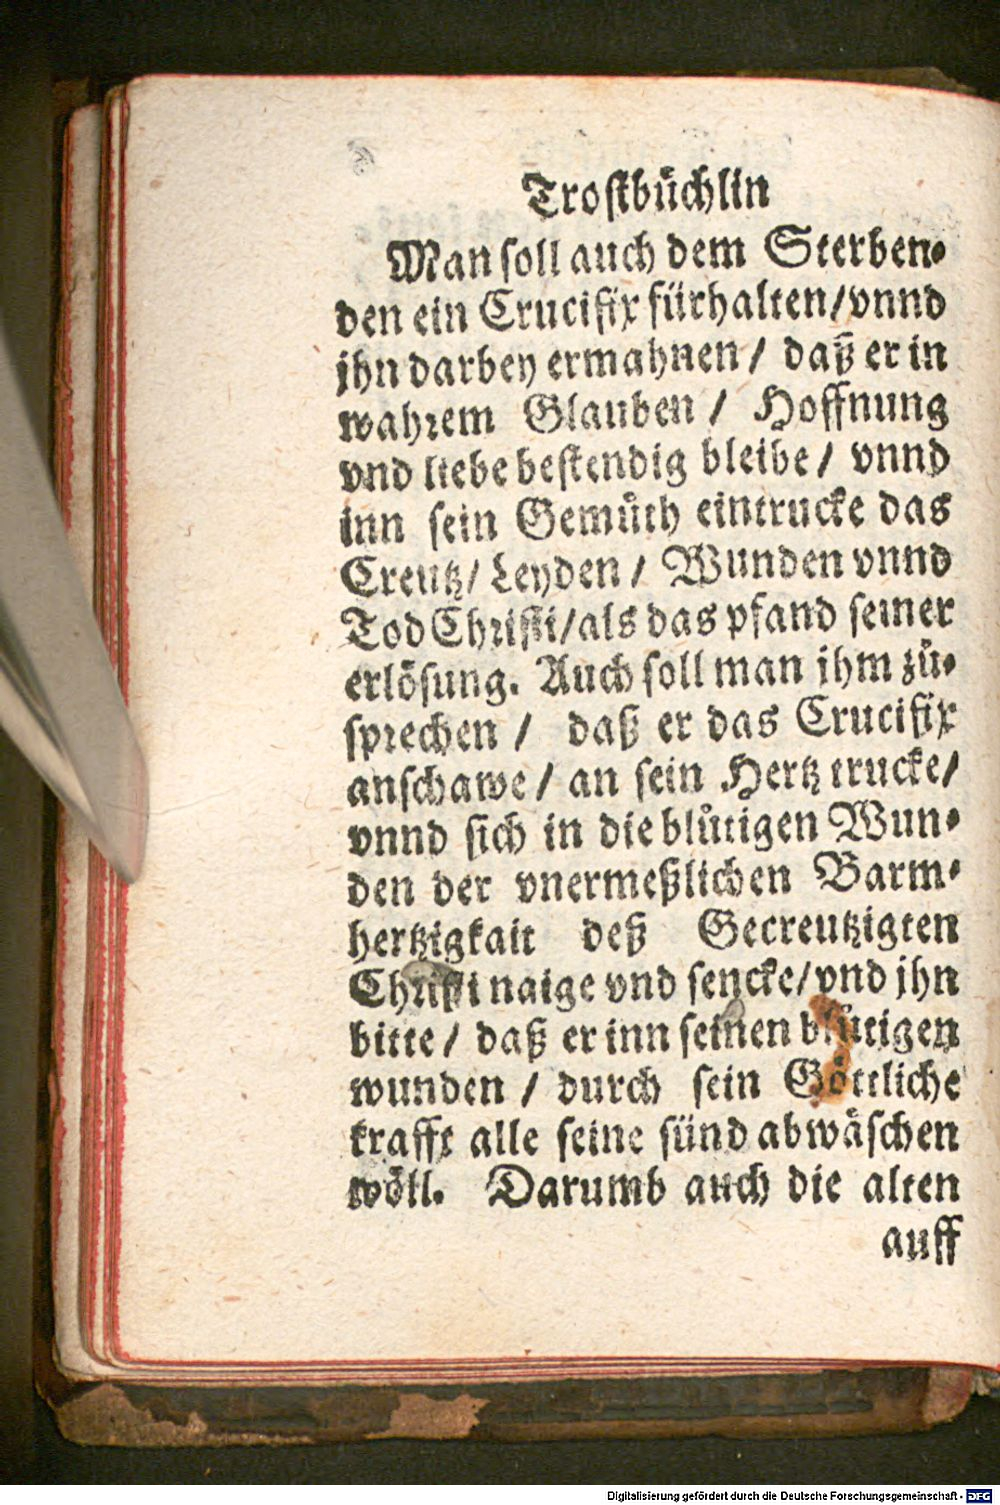 Trostbuͤchlin
Man soll auch dem Sterben⸗
den ein Crucifix fürhalten/vnnd
jhn darbey ermahnen / daß̄ er in
wahrem Glauben / Hoffnung
vnd liebe bestendig bleibe / vnnd
inn sein Gemuͤth eintrucke das
Creutz/ Leyden / Wunden vnnd
Tod Christi/als das pfand seiner
erlösung. Auch soll man jhm zuͦ⸗
sprechen / daß er das Crucifix
anschawe / an sein Hertz trucke/
vnnd sich in die bluͤtigen Wun⸗
den der vnermeßlichen Barm⸗
hertzigkait deß Gecreutzigten
Christi naige vnd sencke/vnd jhn
bitte / daß er inn seinen bluͤtigen
wunden / durch sein Göttliche
krafft alle seine sünd abwäschen
wöll. Darumb auch die alten
auff
Digitalisierung gefördert durch die Deutsche Forschungsgemeinschaft - DFG